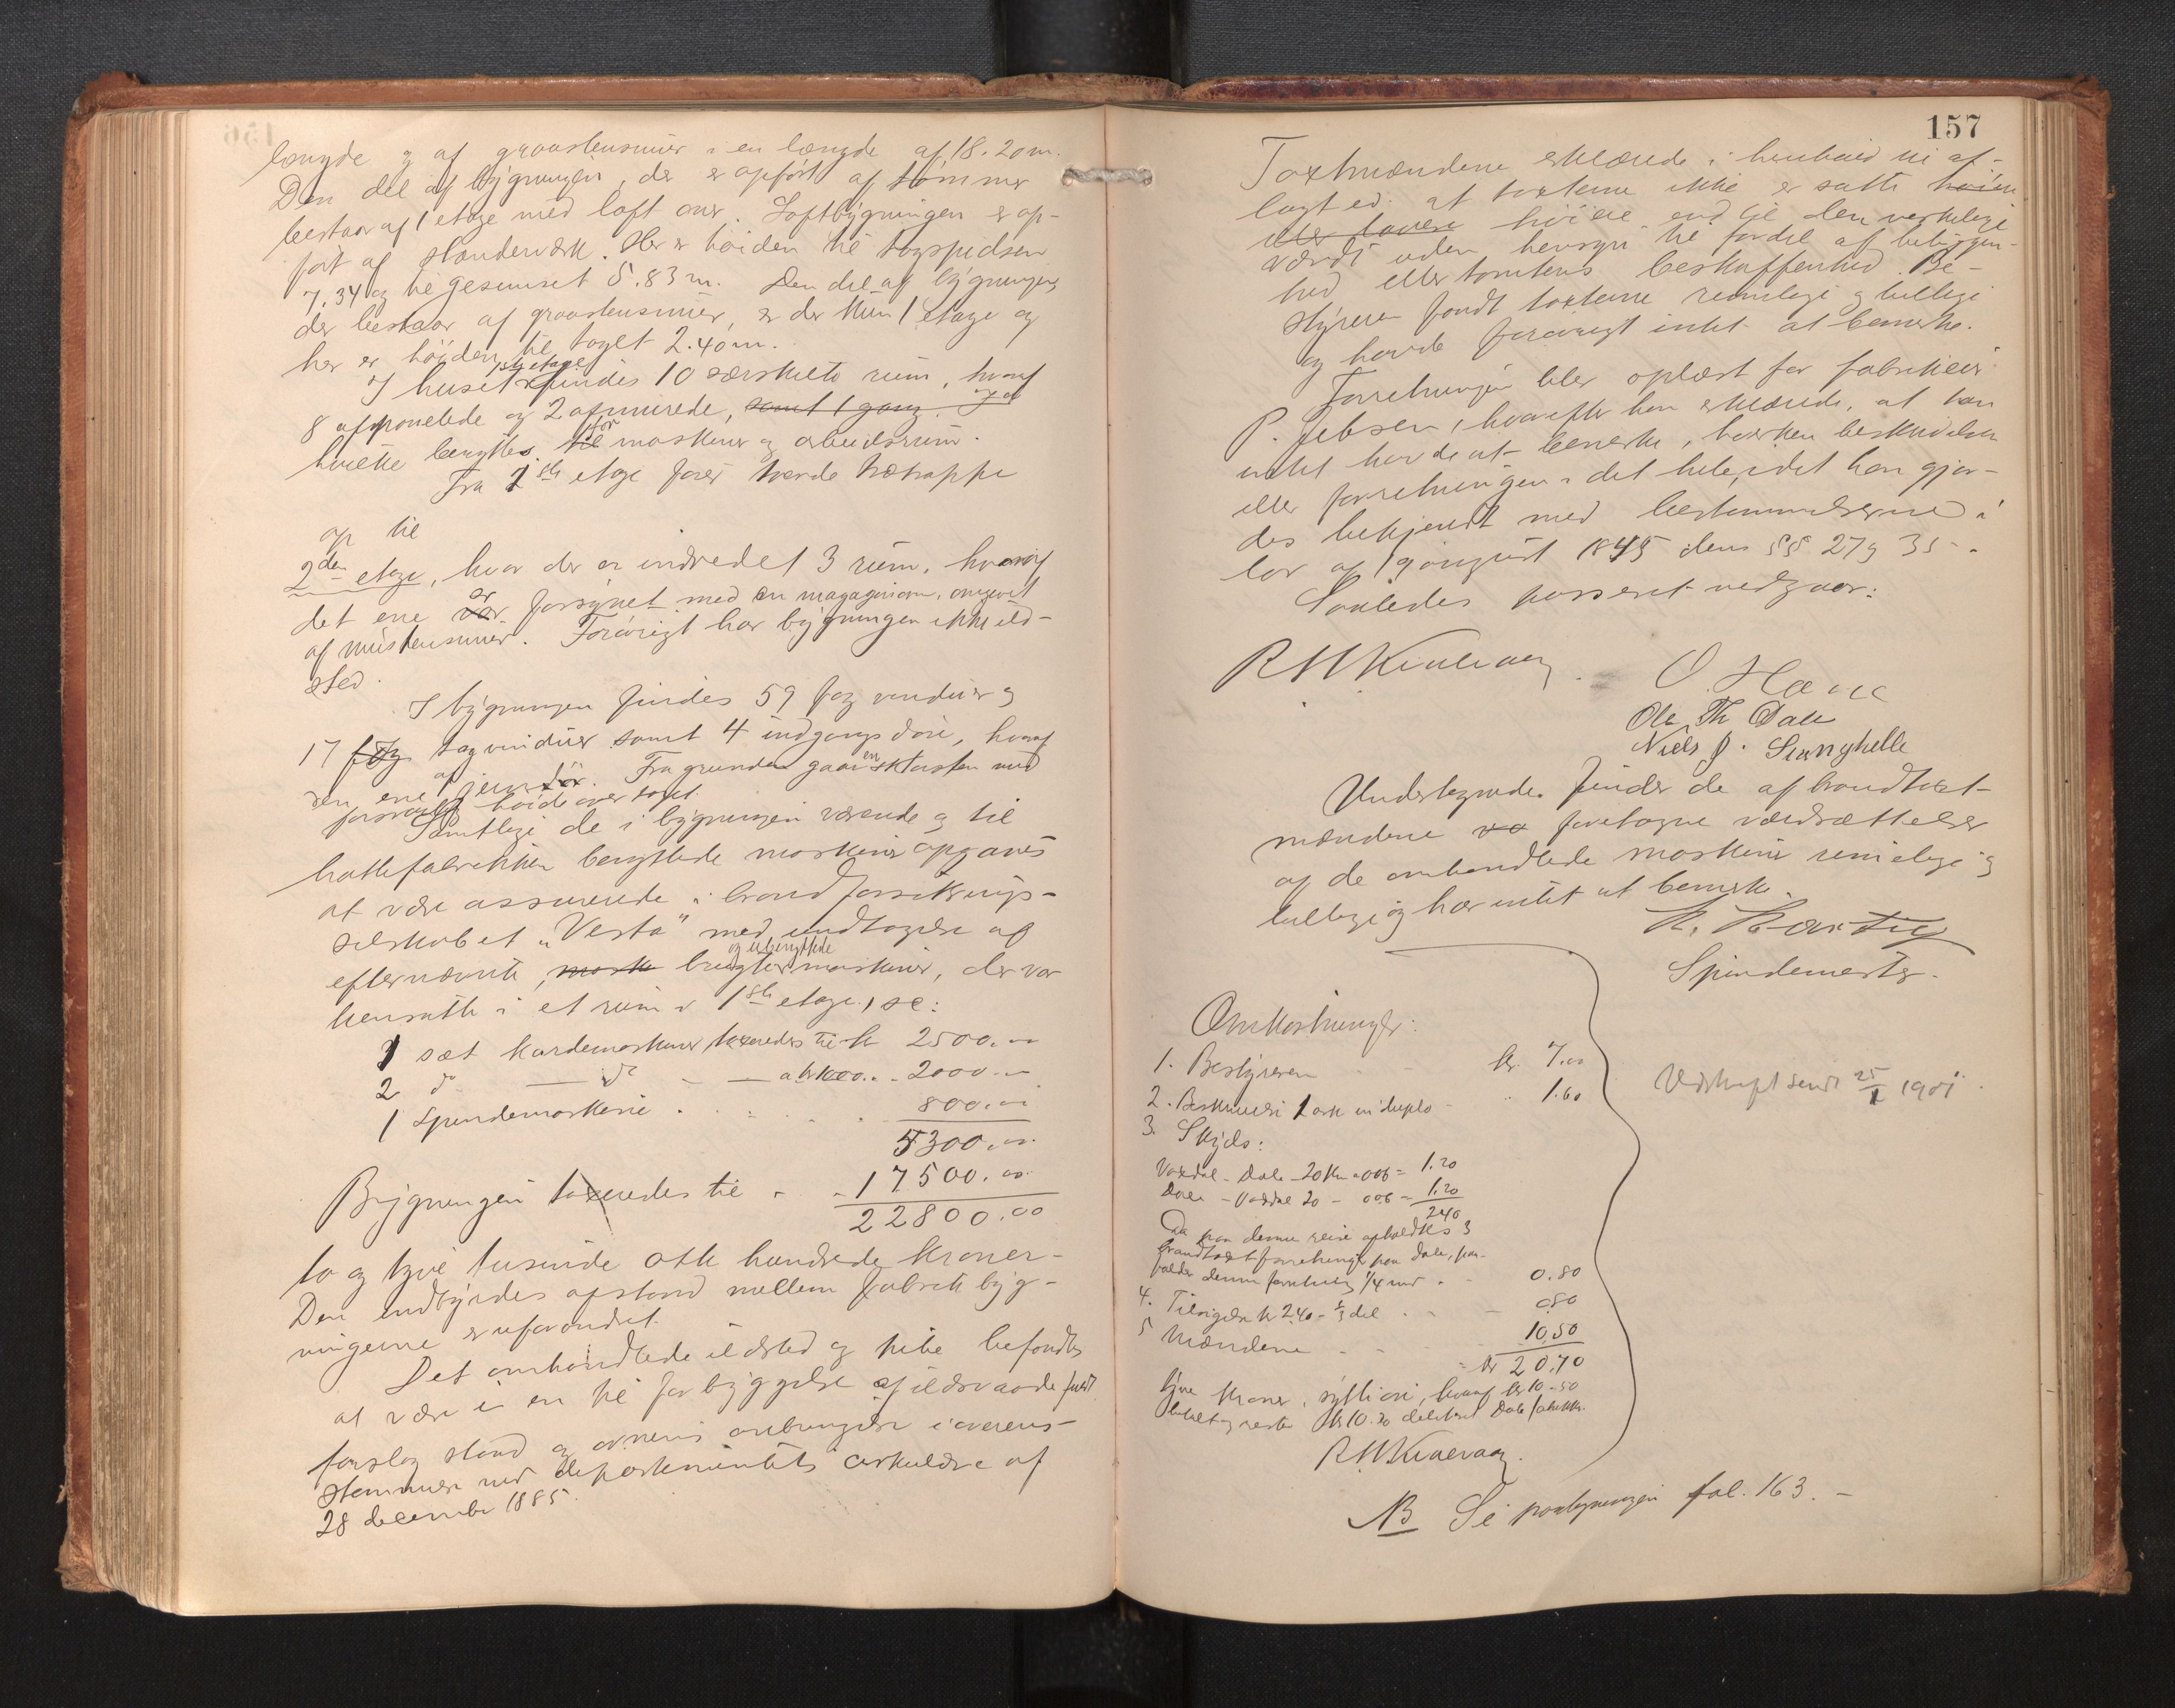 længde og af graastensmur i en længde af 18.20 m.
Den del af bygningen, der er opført af tømmer
bestaar af 1 etage med loft over. Loftbygningen er op-
ført af stænderværk. Her er høiden til tagspidsen
7.34 og til gesimset 5.83 m. Den del af bygningen,
der bestaar af graastensmur, er der kun 1 etage og
her er høiden til taget 2.40 m.
I huset 1ste etage findes 10 særskilte rum, hvoraf
8 afpanelede og 2 afmurede, samt 1 gang.
hvilke benyttes til for maskiner og arbeidsrum.
Fra 1ste etage fører trætrappe
op til
2den etage, hvor der er indredet 3 rum, hvoraf
det ene er forsynet med en magasinovn, omgivet
af murstensmur. Forøvrigt har bygningen ikke ild-
sted.
I bygningen findes 59 fag vinduer og
17 fag tagvinduer samt 4 indgangsdøre, hvoraf
den ene af jern. Fra grunden gaar en skorsten med
forsvarlig høide over taget.
Samtlige de i bygningen værende og til
hattefabrikken benyttede maskiner opgaves
at være assurerede i brandforsikrings-
selskabet "Vesta" med undtagelse af
efternævnte, mask brugte og ubenyttede maskiner, der var
hensatte i et rum i 1ste etage, se:
1 sæt kardemaskiner taxeredes til kr 2500.00
2 do — do — a kr 1000.. - 2000.—
1 Spindemaskine . . . . 800.00
5300.00
Bygningen taxeredes til - - 17500.00
22800.00
to og tyve tusinde otte hundrede kroner-
Den indbyrdes afstand mellem fabrikbyg-
ningerne er uforandret.
Det omhandlede ildsted og pibe befandtes
at være i en til forbyggelse af ildsvaade fuldt
forsvarlig stand og ovnens anbringelse i overens-
stemmelse med departementets cirkulære af
28 december 1885.
157
Taxtmændene erklærede i henhold til af-
lagt ed, at taxterne ikke er satte høiere
eller lavere høiere end til den virkelige
værdi uden hensyn til fordel af beliggen-
hed eller tomtens beskaffenhed. Be-
styreren fandt taxterne rimelige og billige
og havde forøvrigt intet at bemerke.
Forretningen blev oplæst for fabrikeier
P. Jebsen, hvorefter han erklærede, at han
intet havde at bemerke, hverken beskrivelsen
eller forretningen i det hele, idet han gjor-
des bekjendt med bestemmelserne i
lov af 19 august 1845 dens §§ 27 og 35.
Saaledes passeret vedgaar:
O. Hane
Ole Th Dale
Niels J. Stanghelle
Undertegnede finder de af brandtaxt-
mændene foretagne værdsættelser
af de omhandlede maskiner rimelige og
billige og har intet at bemerke.
Spindemester.
Omkostninger:
1. Bestyreren - - kr. 7.00
2. Beskrivelse 1 ark in duplo - . 1.60
3. Skyds:
Vaxdal - Dale 20 km a 006 = 1.20
Dale - Vaxdal 20 - 006 = 1.20
240
Da paa denne reise afholdtes 3
brandtaxtforretninger paa Dale, paa-
falder denne forretning 1/4 med . - 0.80
4. Tilsigelse kr 2.40 - 1/3 del . - - 0.80
5 Mændene - - - 10.50
= kr 20.70
tyve kroner, sytti øre, hvoraf kr 10.50
betalt og resten kr 10.20 debiteret Dale fabrikker.
Udskrift sendt 25/1 1901.
NB Se paategningen fol. 163. -